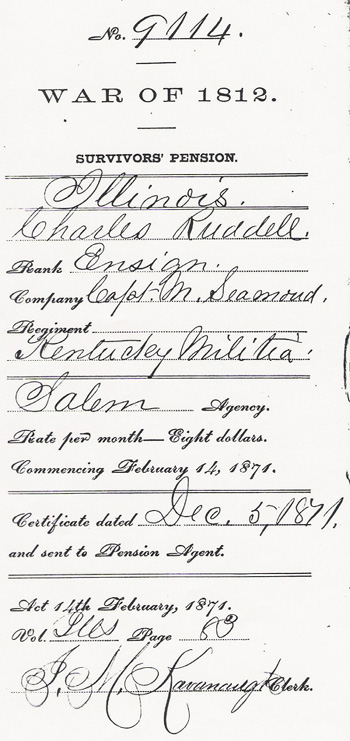 No. 9114.
WAR OF 1812.
SURVIVORS' PENSION.
Illinois.
Charles Ruddell.
Rank Ensign.
Company Capt. M. Seamond.
Regiment
Kentucky Militia.
Salem Agency.
Rate per month—Eight dollars.
Commencing February 14, 1871.
Certificate dated Dec. 5, 1871.
and sent to Pension Agent.
Act 14th February, 1871.
Vol. Ills Page 63
J. M. Kavanaugh Clerk.